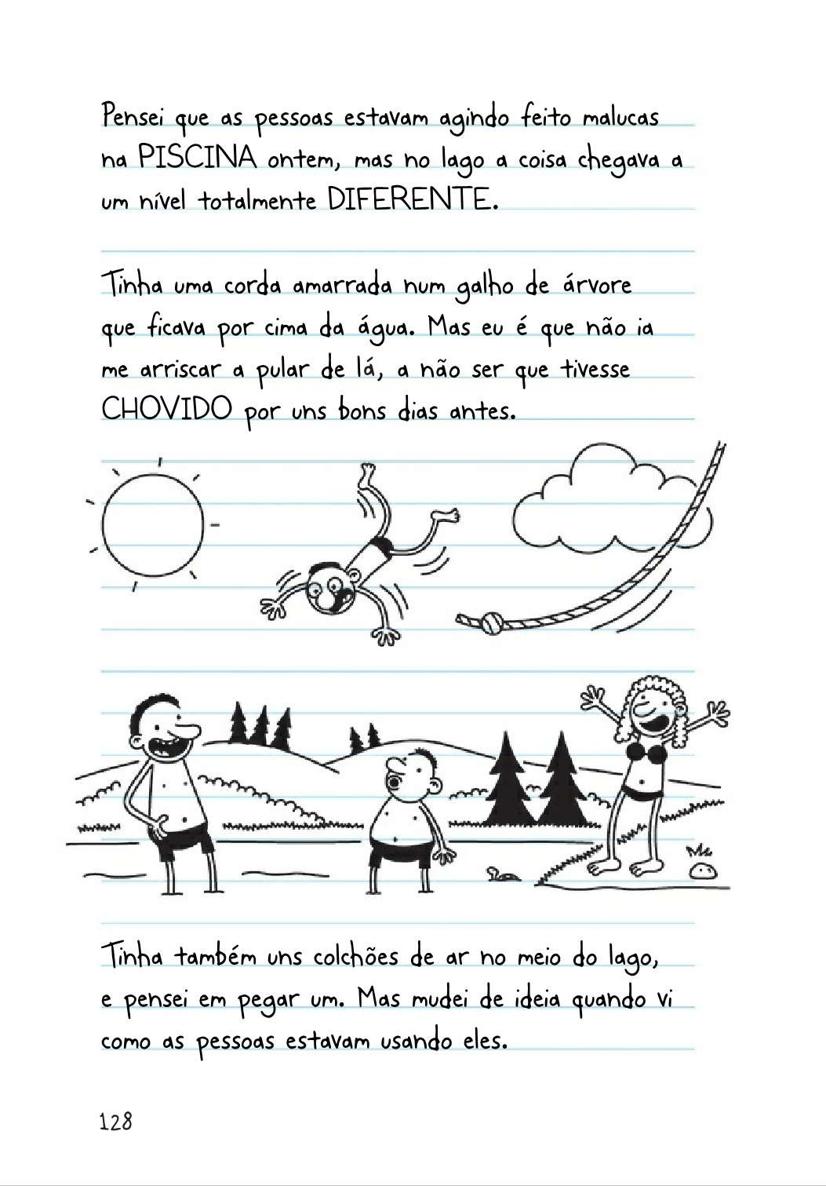 Pensei que as pessoas estavam agindo feito malucas
na PISCINA ontem, mas no lago a coisa chegava a
um nível totalmente DIFERENTE.
Tinha uma corda amarrada num galho de árvore
que ficava por cima da água. Mas eu é que não ia
me arriscar a pular de lá, a não ser que tivesse
CHOVIDO por uns bons dias antes.
Tinha também uns colchões de ar no meio do lago,
e pensei em pegar um. Mas mudei de ideia quando vi
como as pessoas estavam usando eles.
128